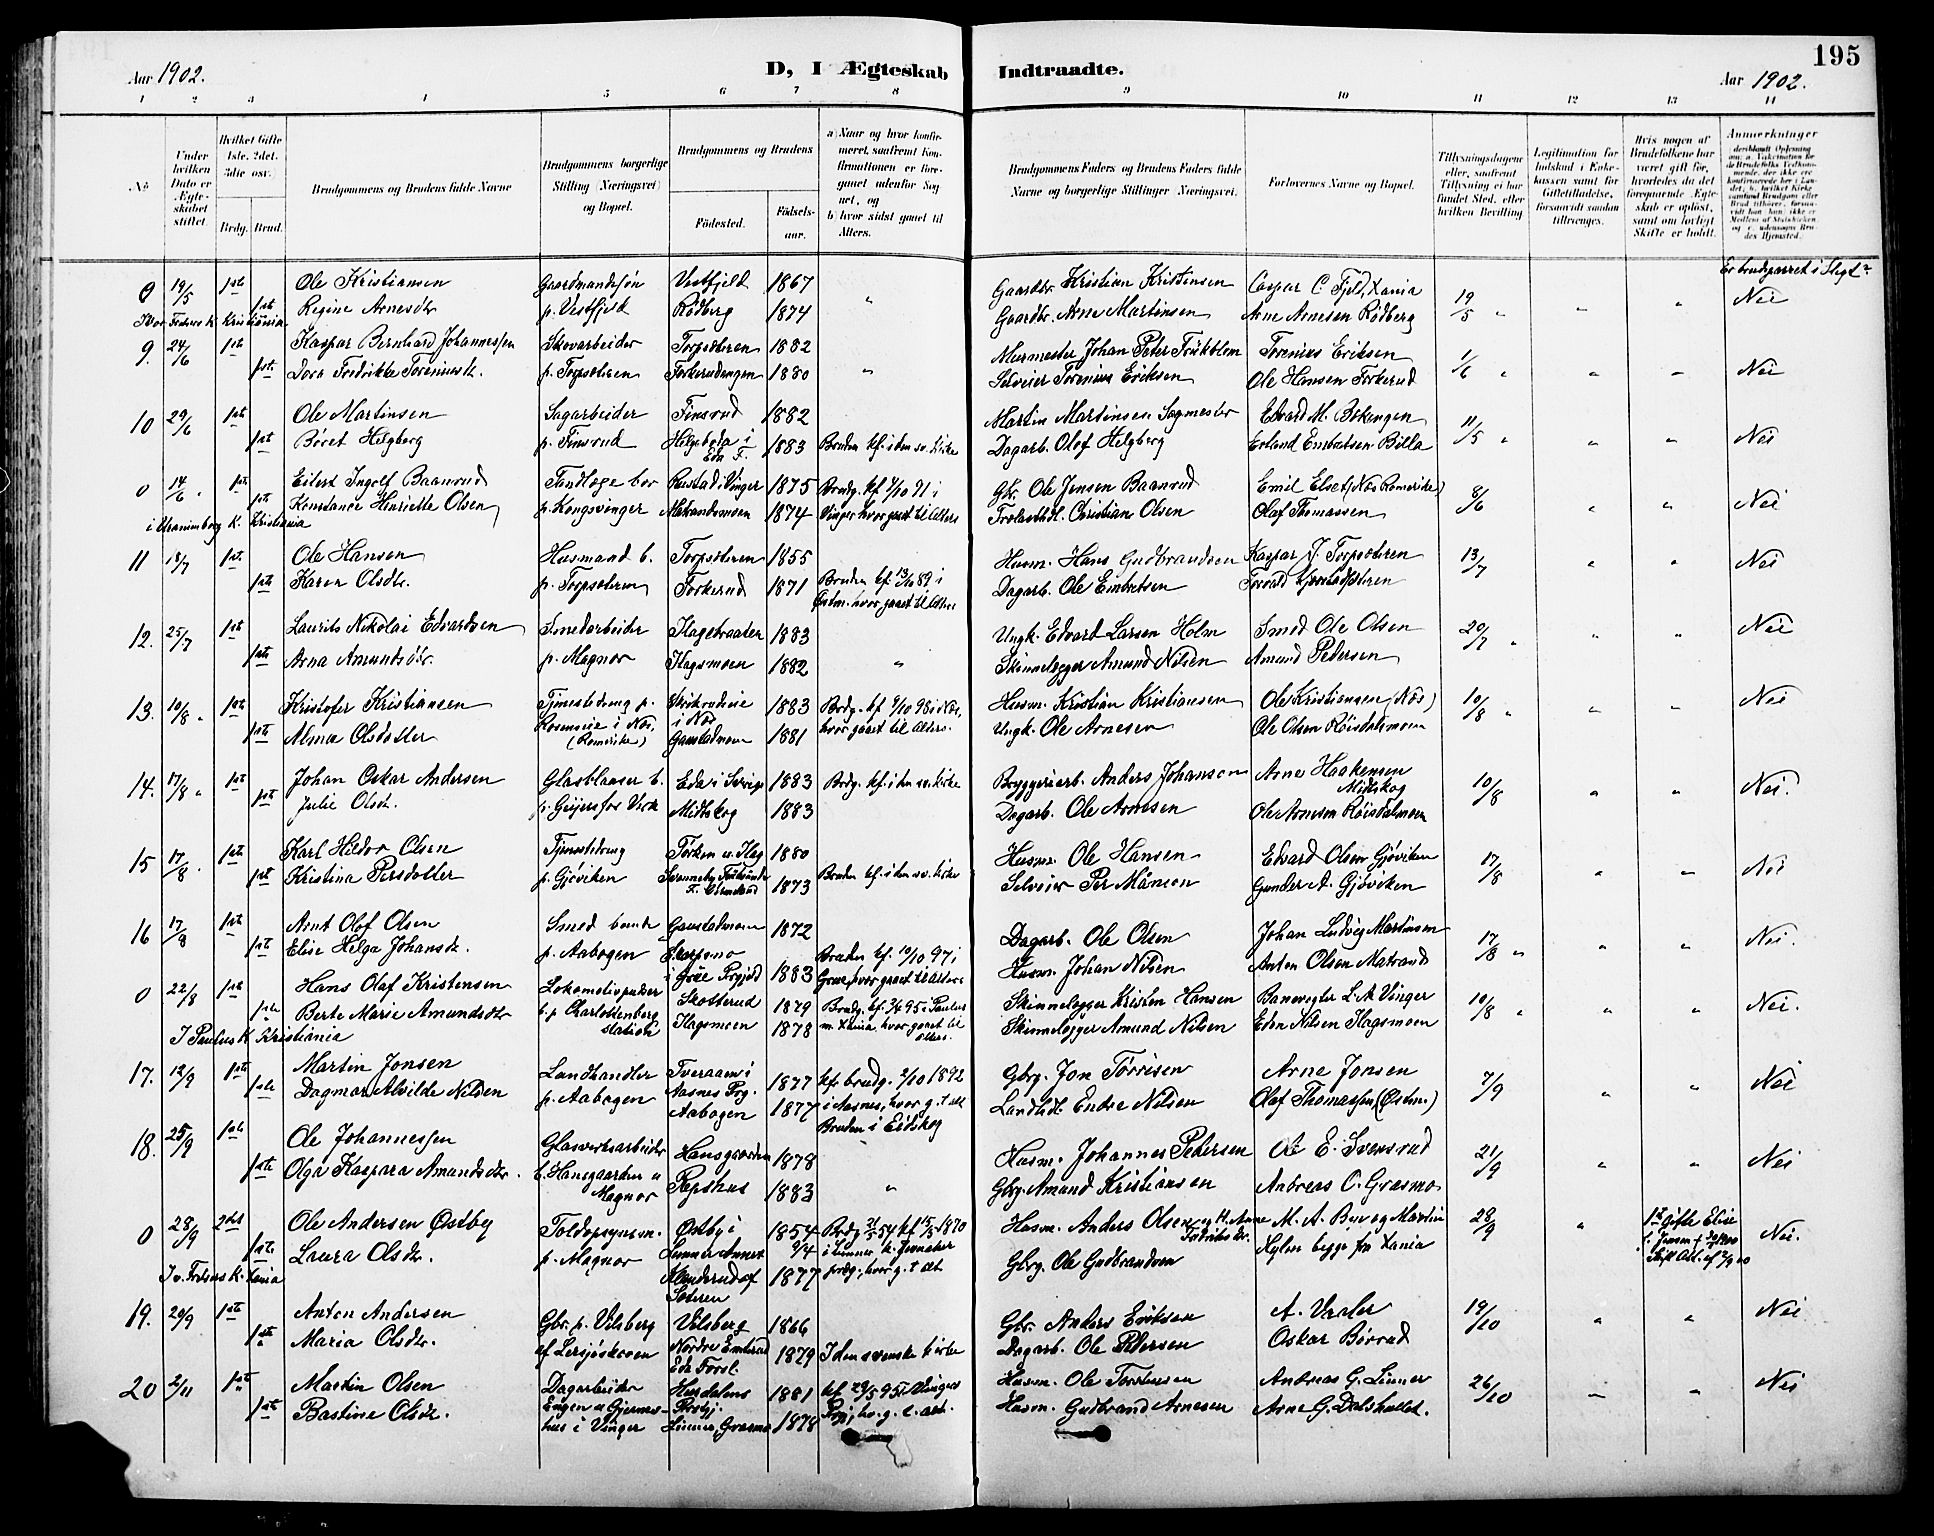 195
Aar 1902.
D, I Ægteskab Indtraadte.
Aar 1902.
1 2 3 4 5 6 7 8 9 10 11 12 13 14
No
Under hvilken Dato er Ægteskabet stiftet.
Hvilket Gifte 1ste, 2det, 3die osv.
Brdg. Brud.
Brudgommens og Brudens fulde Navne
Brudgommens borgerlige Stilling (Næringsvei) og Bopæl.
Brudgommens og Brudens
Fødested.
Fødselsaar.
a) Naar og hvor konfirmeret, saafremt Konfirmationen er foregaaet udenfor Sognet, og
b) hvor sidst gaaet til Alters.
Brudgommens Faders og Brudens Faders fulde Navne og borgerlige Stillinger (Næringsvei).
Forlovernes Navne og Bopæl.
Tillysningsdagene eller, saafremt Tillysning ei har fundet Sted, efter hvilken Bevilling
Legitimation for Indskud i Enkekassen samt for Giftetilladelse, forsaavidt saadan tiltrænges.
Hvis nogen af Brudefolkene har været gift før, hvorledes da det foregaaende Ægteskab er opløst, samt om lovligt Skifte er holdt.
Anmerkninger
Er brudeparret i Slegt?
0 19/5 1ste Ole Kristiansen Gaardmandssøn Vestfjeld 1867 Gaardbr. Kristian Kristensen Caspar C. Fjeld, Xania 19/5 " " " Nei
1ste Regine Arnesdtr p. Vestfjeld Rødberg 1874 " Gaardbr. Arne Martinsen Arne Arnesen Rødberg
I Vor Frelsers K. Kristiania
9. 24/6 1ste Kaspar Bernhard Johannessen Skovarbeider Torpsæteren 1882 Murmester Johan Peter Trükblom Torenius Eriksen 1/6 " " " Nei
1ste Dora Fredrikke Toreniusdtr. p. Torpsæteren Torkerudengen 1880 " Selveier Torenius Eriksen Ole Hansen Torkerud
10 29/6 1ste Ole Martinsen Sagarbeider Finsrud 1882 Martin Martinsen Sagmester Edvard M. Bekengen 11/5 " " " Nei
1ste Børet Helgberg p. Finsrud Helgeboda i Eda F. 1883 Bruden kf. i den sv. kirke Dagarb. Olof Helgberg Erland Embretsen Billa
0 14/6 1ste Eilert Ingolf Baanrud Tandlæge bor Rustad i Vinger 1875 Brudg. kf 4/10 91 i Gbr. Ole Jensen Baanrud Emil Elset (Næs Romerike) 8/6 " " Nei
1ste Konstance Henriette Olsen p. Kongsvinger Matrandsmoen 1874 Vinger hvor gaaet til Alters Trælasthdl. Christian Olsen Olaf Thomassen
i Uranienborg K. Kristiania
11 18/7 1ste. Ole Hansen Husmand b. Torpsæteren 1855 Husm. Hans Gudbrandsen Kaspar J. Torpsæteren 13/7 " " Nei
1ste Karen Olsdtr. p. Torpsæteren Torkerud 1871 Bruden kf. 13/10 89 i Østm. hvor gaaet til Alters Dagarb. Ole Embretsen
12. 25/7 1ste Laurits Nikolai Edvardsen Smedarbeider Hagebraaten 1883 Ungk. Edvard Larsen Holm Smed Ole Olsen 20/7 " " " Nei
1ste Arna Amundsdtr. p. Magnor Hagsmoen 1882 " Skinnelægger Amund Nilsen Amund Pedersen
13. 10/8 1ste Kristofer Kristiansen Tjenestedreng p. 1883 Brdg. kf 9/10 98 i Næs, Husm. Kristian Kristiansen Ole Kristiansen (Næs) 10/8 " " " Nei
1ste Alma Olsdotter i Næs, (Romerike) i Næs Gaustadmoen 1881 hvor gaaet til Alters. Ungk. Ole Arnesen Ole Olsen Röisdalsmoen
14. 17/8 1ste Johan Oskar Andersen Glasblaaser b. Eda i Sverige 1883 Brdg. kf. i den sv. kirke Bryggeriarb. Anders Johanson Arne Haakensen Midtskog 10/8 " " Nei.
1ste Julie Olsdtr. p. Geijersfor Verk Midtskog 1883 Dagarb. Ole Arnesen Ole Arnesen Röisdalmoen
15 17/8. 1ste Karl Hildor Olsen Tjenestedreng Torken u. Hag 1880 Husm. Ole Hansen Edvard Olsen Gjøviken 17/8 " " Nei
1ste Kristina Persdotter p. Gjøviken 1873 Bruden kf. i den sv. kirke Selveier Per Månson Gunder A. Gjøviken
16 17/8 1ste Arnt Olof Olsen Smed boende Gaustadmoen 1872 Dagarb. Ole Olsen Johan Ludvig Martinsen 17/8 " " " Nei.
1ste Elise Helga Johansdtr. p. Aabogen i Grue Prgjld 1883 Bruden kf. 10/10 97 i Grue, hvor gaaet til Alters Husm. Johan Nilsen Anton Olsen Matrand
0 22/8 1ste Hans Olaf Kristensen Lokomotivpudser Skotterud 1879 Brudg. kf. 3/4 95 i Paulus Skinnelægger Kristen Hansen Banevogter L. A. Vinger 10/8 " " " Nei.
1ste Berte Marie Amundsdtr b. p. Charlottenberg station Hagsmoen 1878 m. Xania, hvor gaaet til Alters. Skinnelægger Amund Nilsen Eden Nilsen Hagsmoen
I Paulus K. Kristiania
17. 12/9 1ste Martin Jonsen Landhandler Tveraaen i Aasnes Prg. 1877 kf. brudg. 2/10 1892 Gbrg. Jon Törrisen Arne Jonsen 7/9 " " Nei
1ste Dagmar Alvilde Nilsen p. Aabogen Aabogen 1877 i Aasnes, hvor g. t. alt Bruden i Eidskog Landhdl. Endre Nilsen Olaf Thomassen (Østm.)
18. 25/9 1ste Ole Johannessen Glasverksarbeider Hansgaarden 1878 Husm. Johannes Pedersen Ole E. Svensrud 21/9 " " Nei
1ste Olga Kaspara Amundsdtr. b. Hansgaarden u Magnor Papshus 1883 " Gbrg. Amund Kristiansen Andreas C. Grasmo
0 28/9 2det Ole Andersen Østby Toldopsynsm. Østby i 1854 Brdg. kf 15/5 1870 Husm. Anders Olsen og H. Anne M. A. Bye og Martin 28/9 " 1ste gifte Elise Nei.
1ste Laura Olsdtr. p. Magnor Lunner Annex 9/4 i Lunner k. Jevnaker Hylen begge fra Xania
Sæteren 1877 prdg., hvor g. t alt Gbrg. Ole Gudbrandsen
I v. Frelsers K. Xania
19. 20/9 1ste Anton Andersen Gbr. p. Vilsberg Vilsberg 1866 Gbr. Anders Eriksen A. Vraler 19/10 " " Nei
1ste Maria Olsdtr. af Lersjöskoven Nordre Emterud Eda Forsl. 1879 I den svenske kirke Dagarb. Ole Pedersen Oskar Börrud
20 2/11 1ste Martin Olsen Dagarbeider Husdalens 1881 kf 29/5 95 i Vinger Husm. Ole Torstensen Andreas G. Linner 26/10 " " Nei
1ste Bastine Olsdtr. Engen u Gjermeshus i Vinger Linner, Grasmo 1878 Prgj, hv. g. t. alt. Husm. Gudbrand Arnesen Arne G. Dalshullet.